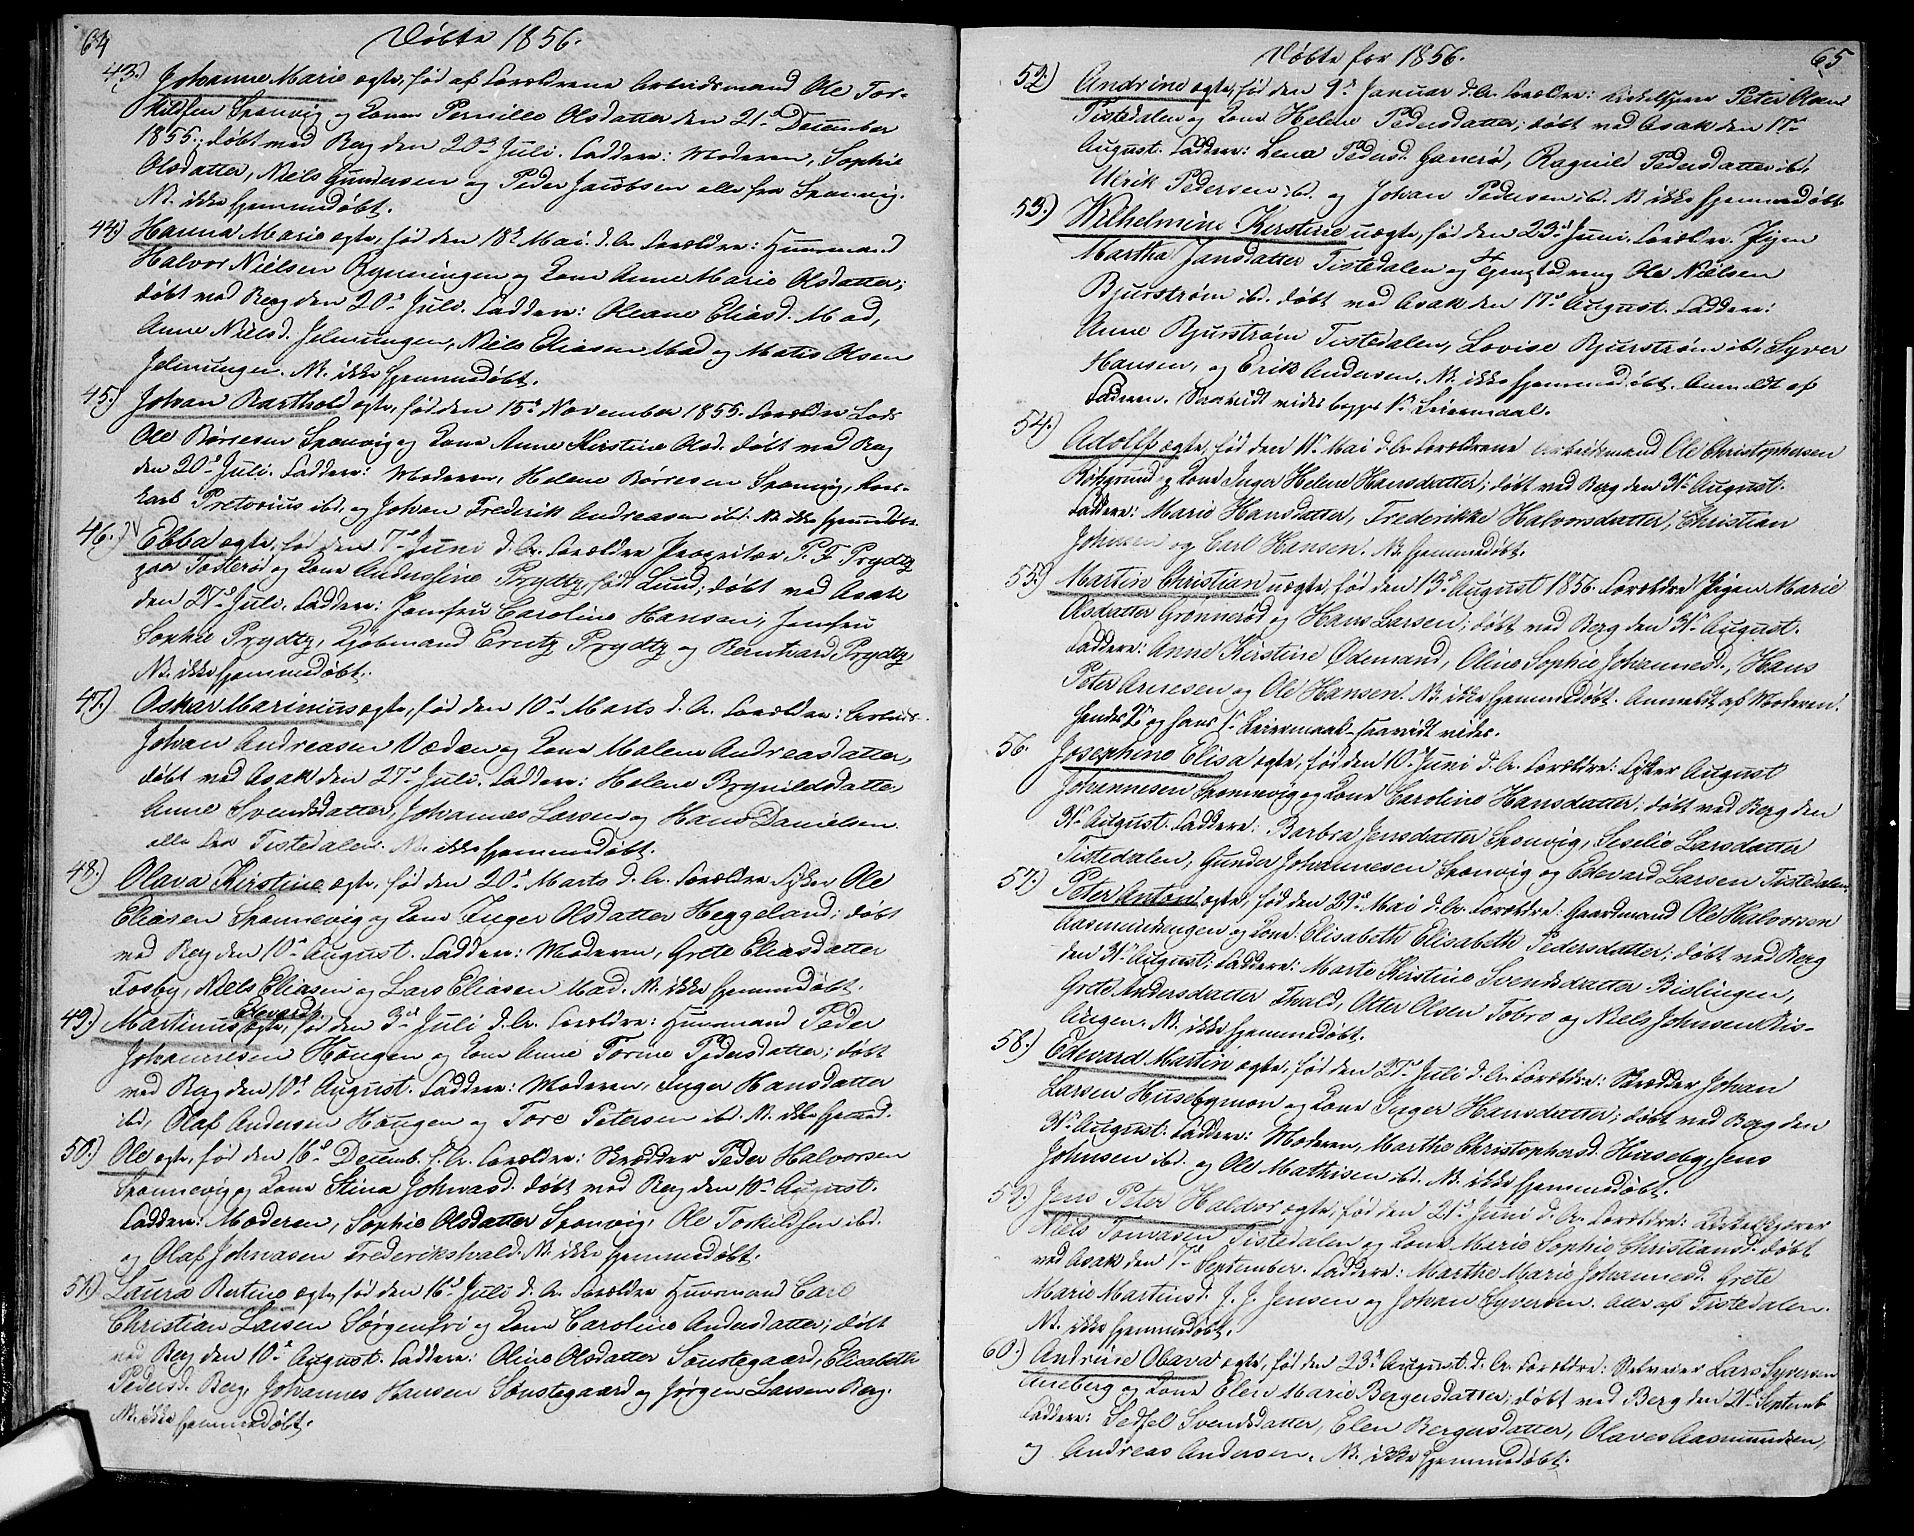 64
Døbte 1856.
43.) Johanne Marie ægte, født af Forældrene Arbeidsmand Ole Tor-
kildsen Sponvig og Kone Pernille Olsdatter den 21de December
1855; døbt ved Berg den 20de Juli. Faddere: Moderen, Sophie
Olsdatter, Niels Gundersen og Peder Jacobsen alle fra Sponvig.
N. ikke hjemmedøbt.
44.) Hanna Marie ægte, fød den 18de Mai d. A. Forældre: Huusmand
Halvor Nielsen Rynningen og Kone Anne Marie Olsdatter;
døbt ved Berg den 20de Juli. Faddere: Oleane Eliasd. Mad,
Anne Nielsd. Jelmungen, Niels Eliasen Mad og Matis Olsen
Jelmungen. N. ikke hjemmedøbt.
45.) Johan Barthold ægte, fød den 15de November 1855. Forældre Lods
Ole Børresen Sponvig og Kone Anne Kirstine Olsd. døbt ved Berg
den 20de Juli. Faddere: Moderen, Helene Børresen Sponvig,
Pretorius ibd. og Johan Frederik Andreasen ibd. N. ikke hjemmedøbt.
46.) Ebba ægte, fød den 7de Juni d. A. Forældre Proprietær P. F. Prydtz
paa Torderød og Kone Andersine Prydtz, født Lund; døbt ved Asak
den 27de Juli. Faddere: Jomfru Caroline Hansen, Jomfru
Sophie Prydtz, Kjøbmand Erntz Prydtz og Bernhard Prydtz
N. ikke hjemmedøbt.
47.) Oskar Marinius ægte, fød den 10de Marts d. A. Forældre: Arbeids.
Johan Andreasen Væden og Kone Malene Andreasdatter,
døbt ved Asak den 27de Juli. Faddere: Helene Brynildsdatter
Anne Svendsdatter, Johannes Larsen og Hans Danielsen.
alle fra Tistedalen. N. ikke hjemmedøbt.
48.) Olava Kirstine ægte, fød den 20de Marts d. A. Forældre Fisker Ole
Eliasen Sponnevig og Kone Inger Olsdatter Heggeland; døbt
ved Berg den 10de August. Faddere: Moderen, Grete Eliasdatter
Fosby, Niels Eliasen og Lars Eliasen Mad. N. ikke hjemmedøbt.
49.) Martinus Edevard ægte, fød den 3de Juli d. A. Forældre: Huusmand Peder
Johannesen Hougen og Kone Anne Torine Pedersdatter; døbt
ved Berg den 10de August. Faddere: Moderen, Inger Hansdatter
ibd, Olaf Andersen Hougen og Tore Petersen ibd. N. ikke hjemd.
50.) Ole ægte, fød den 16de Decemb. f. A. Forældre: Skrædder Peder Halvorsen
Sponnevig og Kone Stina Johnasd. døbt ved Berg den 10de August.
Faddere: Moderen, Sophie Olsdatter Sponvig, Ole Torkildsen ibd.
og Olaf Johnasen Frederikshald. N. ikke hjemmedøbt.
51.) Laura Bertine ægte, fød den 16de Juli d. A. Forældre Huusmand Carl
Christian Larsen Sørgenfri og Kone Caroline Andersdatter; døbt
ved Berg den 10de August. Faddere: Oline Olsdatter Sanstegaard, Elisabeth
Pedersd. Berg, Johannes Hansen Sønstegaard og Jørgen Larsen Berg.
N. ikke hjemmedøbt.
65
Døbte for 1856.
52.) Andrine ægte, fød den 9de Januar d. A. Forældre: Peter Olsen
Tistedalen og Kone Helene Pedersdatter; døbt ved Asak den 17de
August. Faddere: Lena Pedersd. Ganerød, Ragnil Pedersdatter ibd.
Ulrik Pedersen ibd. og Johan Pedersen ibd. N. ikke hjemmedøbt.
53.) Wilhelmine Kirstine uægte, fød den 23de Juni. Forældre. Pigen
Martha Jansdatter Tistedalen og Ole Nielsen
Bjurstrøm ibd. døbt ved Asak den 17de August. Faddere:
Anne Bjurstrøm Tistedalen, Lovise Bjurstrøm ibd, Syver
Hansen, og Erik Andersen. N. ikke hjemmedøbt. Anmeldt af
Faderen. Saavidt vides begges 1ste Leiermaal.
54.) Adolff ægte, fød den 11te Mai d. A. Forældrene Arbeidsmand Ole Christophersen
Røsgrund og Kone Inger Helene Hansdatter; døbt ved Berg den 31te August.
Faddere: Marie Hansdatter, Frederikke Halvorsdatter, Christian
Johnsen og Carl Hansen. N. hjemmedøbt.
55.) Martin Christian uægte, fød den 13de August 1856. Forældre Pigen Marie
Olsdatter Grønnerød og Hans Larsen; døbt ved Berg den 31te August.
Faddere: Anne Kirstine Ødemand, Oline Sophie Johannesd., Hans
Peter Arnesen og Ole Hansen. N. ikke hjemmedøbt. Anmeldt af Moderen.
Hendes 2det og hans 1ste Leiermaal saavidt vides.
56. Josephine Elisa ægte, fød den 10de Juni d. A. Forældre: Fisker August
Johannesen Sponnevig og Kone Caroline Hansdatter; døbt ved Berg den
31te August. Faddere: Barbra Jensdatter Sponvig, Seselie Larsdatter
Tistedalen, Gunder Johannesen Sponvig og Edevard Larsen Tistedalen.
57.) Peter Anton ægte, fød den 29de Mai d. A. Forældre: Gaardmand Ole Halvorsen
Aasmundungen og Kone Elisabeth Elisabeth Pedersdatter; døbt ved Berg
den 31te August. Faddere: Marte Kirstine Svendsdatter Bislingen,
Grete Andersdatter Thald, Otter Olsen Tobro og Niels Johnsen Bis-
lingen. N. ikke hjemmedøbt.
58.) Edevard Martin ægte, fød den 21de Juli d. A. Forældre: Skrædder Johan
Larsen Husebymon og Kone Inger Hansdatter; døbt ved Berg den
31te August. Faddere: Moderen, Marthe Christophersd. Huseby, Jens
Johnsen ibd. og Ole Mathisen ibd. N. ikke hjemmedøbt.
59.) Jens Peter Haldor ægte, fød den 21de Juni d. A. Forældre:
Niels Tomasen Tistedalen og Kone Marie Sophie Christiansd. døbt
ved Asak den 7de September. Faddere: Marthe Marie Johannesd. Grete
Marie Martinsd. J. J. Jensen og Johan Syversen. Alle af Tistedalen.
N. ikke hjemmedøbt.
60.) Andrine Olava ægte, fød den 23de August d. A. Forældre: Lars Syversen
Aneberg og Kone Elen Marie Bergersdatter; døbt ved Berg den 21de Septemb
Faddere: Sedsel Svendsdatter, Elen Bergersdatter, Olaves Aasmundsen,
og Andreas Andersen. N. ikke hjemmedøbt.